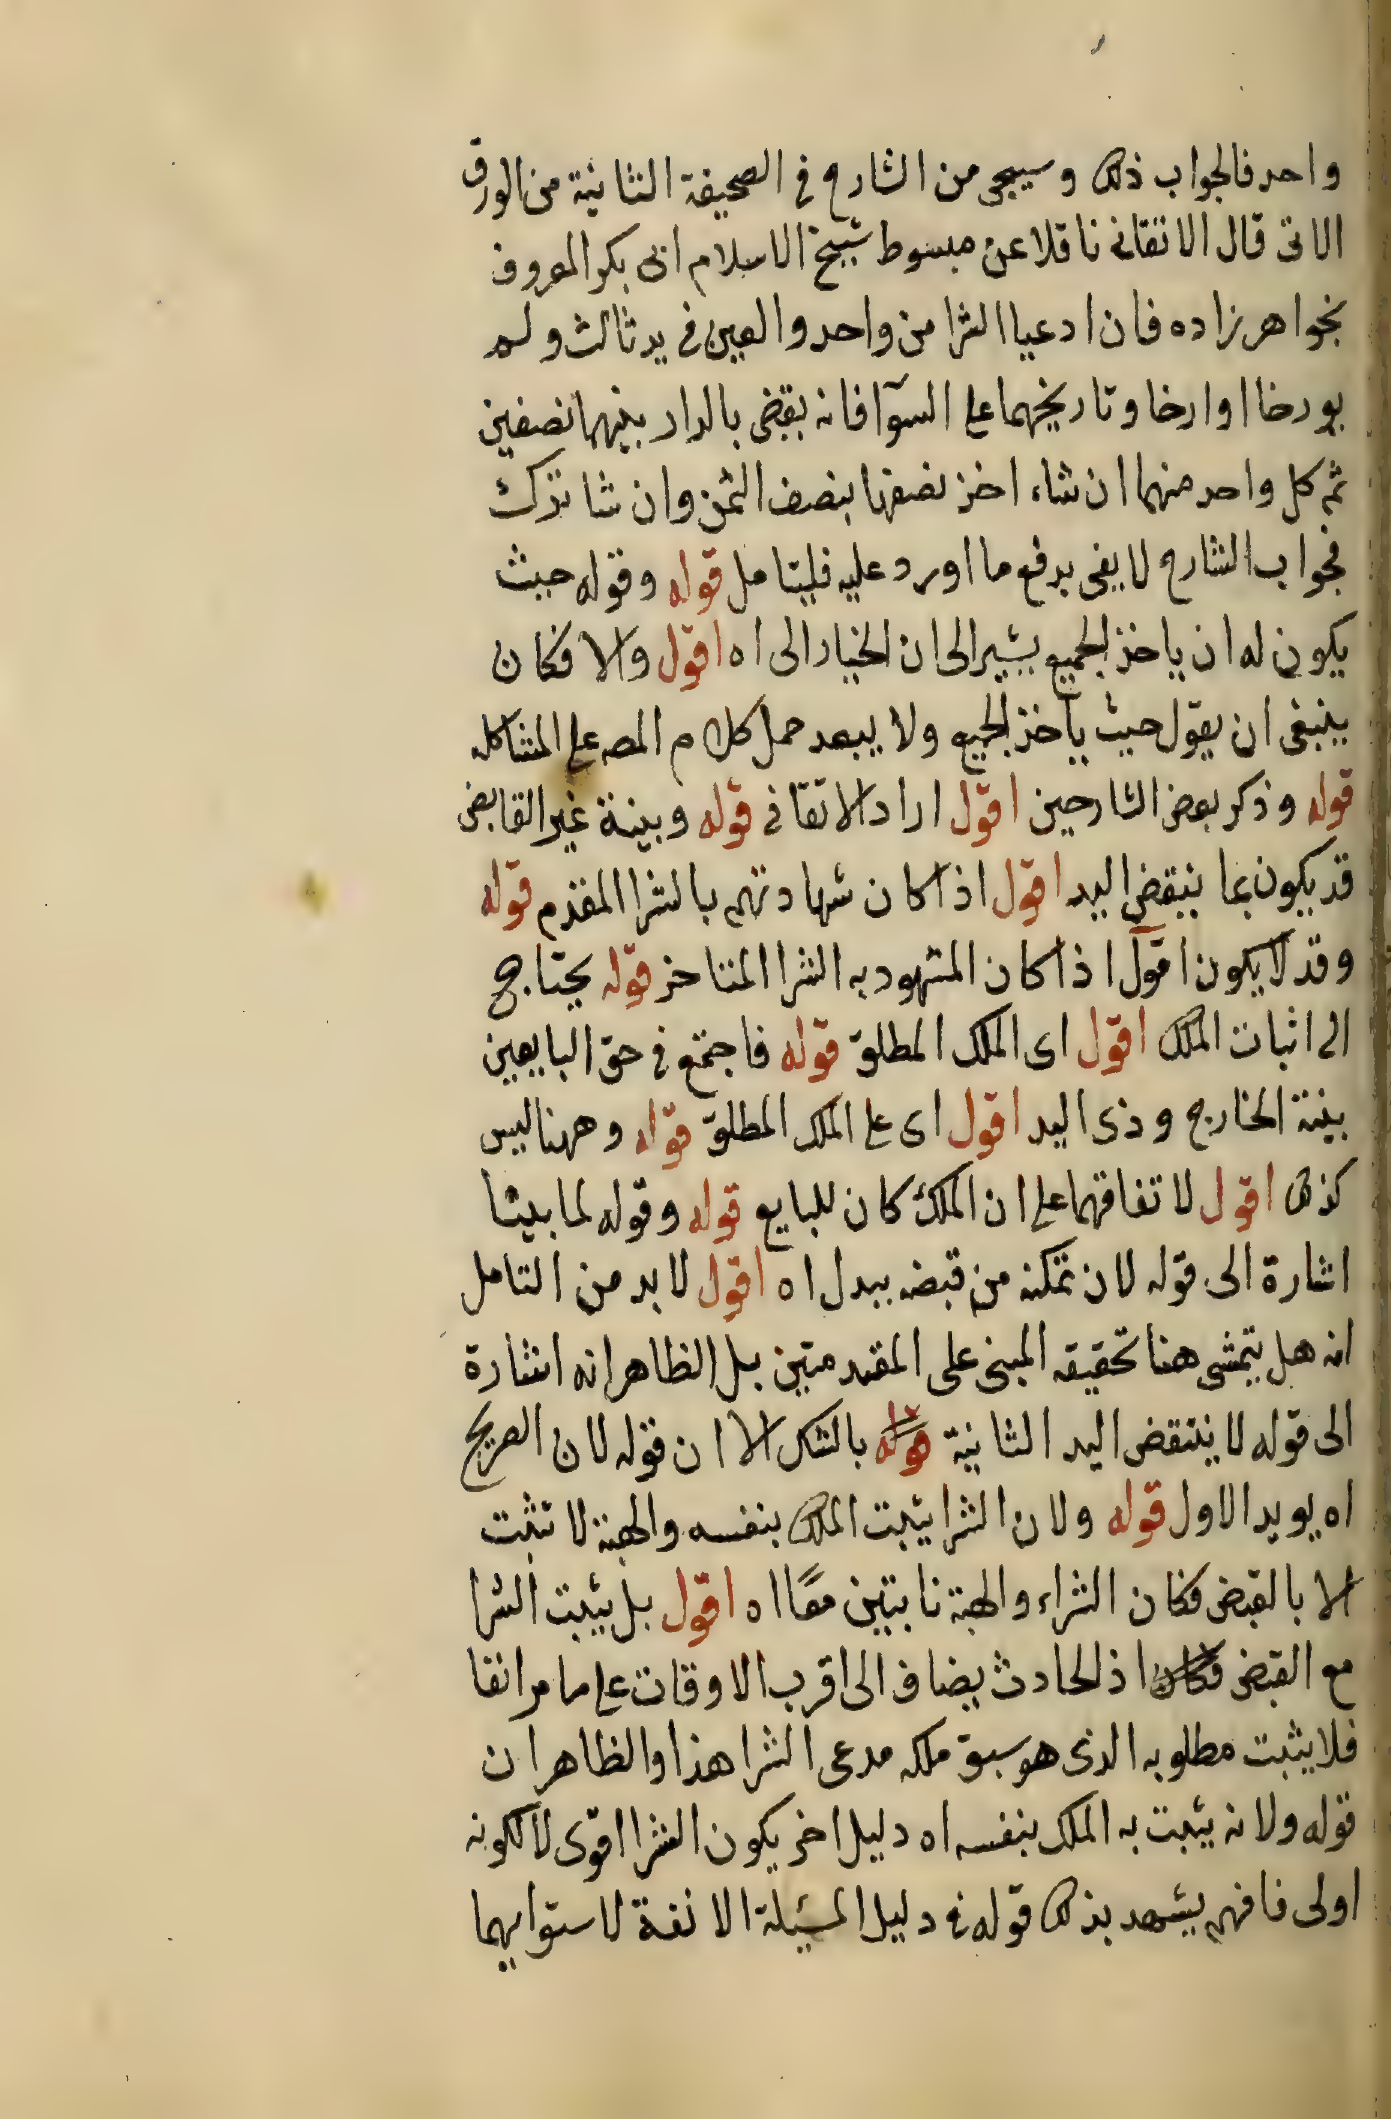 واحد فالجواب ذلك وسيجى من الشارح فى الصحيفة الثانية من الورق
الاتى قال الاتقانى ناقلا عن مبسوط شيخ الاسلام ابى بكر المعروف
بخواهر زاده فان ادعيا الشرا من واحد والعين فى يد ثالث ولم
يورخا او ارخا وتاريخهما على السوآ فانه يقضى بالدار بينهما نصفين
ثم كل واحد منهما ان شاء اخذ نصفها بنصف الثمن وان شا ترك
فجواب الشارح لا يفى بدفع ما اورد عليه فليتامل قوله وقوله حيث
يكون له ان ياخذ الجميع يشير الى ان الخيار الى اه اقول والا فكان
ينبغى ان يقول حيث ياخذ الجميع ولا يبعد حمل كلام المصه على المشاكله
قوله وذكر بعض الشارحين اقول اراد الاتقانى قوله وبينة غير القابض
قد يكون بما ينقض اليد اقول اذا كان شهادتهم بالشرا المقدم قوله
وقد لا يكون اقول اذا كان المشهود به الشرا المتاخر قوله يحتاج
الى اثبات الملك اقول اى الملك المطلق قوله فاجتمع فى حق البايعين
بينة الخارج وذى اليد اقول اى على الملك المطلق قوله وههنا ليس
كذلك اقول لاتفاقهما على ان الملك كان للبايع قوله وقوله لما بينا
اشارة الى قوله لان تمكنه من قبضه يبدل اه اقول لا بد من التامل
انه هل يتمشى هنا تحقيقه المبنى على المقدمتين بل الظاهر انه اشارة
الى قوله لا ينتقض اليد الثانية قوله بالشك الا ان قوله لان الصريح
اه يويد الاول قوله ولان الشرا يثبت الملك بنفسه والهبة لا تثبت
الا بالقبض فكان الشراء والهبة نابتين معًا اه اقول بل يثبت الشرا
مع القبض اذ الحادث يضاف الى اقرب الاوقات على ما مر انفا
فلا يثبت مطلوبه الذى هو سبق ملكه مدعى الشرا هذا والظاهر ان
قوله ولانه يثبت به الملك بنفسه اه دليل اخر يكون الشرا اقوى لا لكونه
اولى فافهم يشهد بذلك قوله فى دليل المسئلة الانفة لاستوايهما